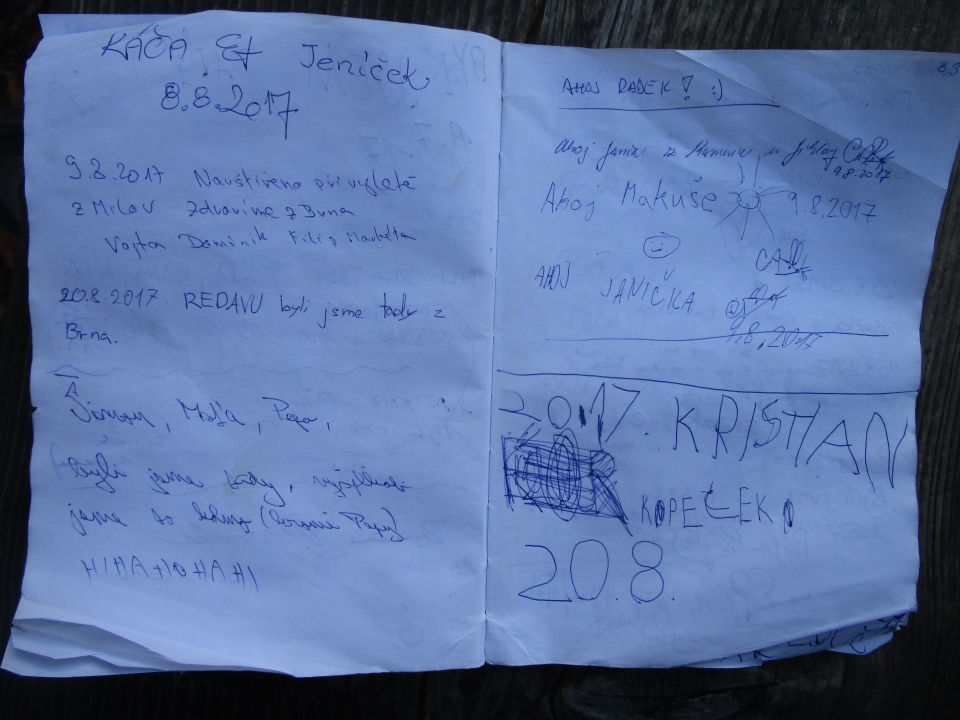 KÁČA Et Jeníček
8.8.2017
9.8.2017 Navštíveno při výletě
z Milov Zdravíme z Brna
Vojta Dominik Filip Markéta
20.8.2017 REDAVU byli jsme tady z
Brna.
Šimon, Maťa, Pepa,
byli jsme tady,
jsme to
HIHAHOHAHI
83
AHOJ RADEK! :)
Ahoj Janča z
9.8.2017
Ahoj Makuše 9.8.2017
AHOJ JANIČKA
9.8.2017
2017. KRISTIAN
KOPEČEK
20.8.